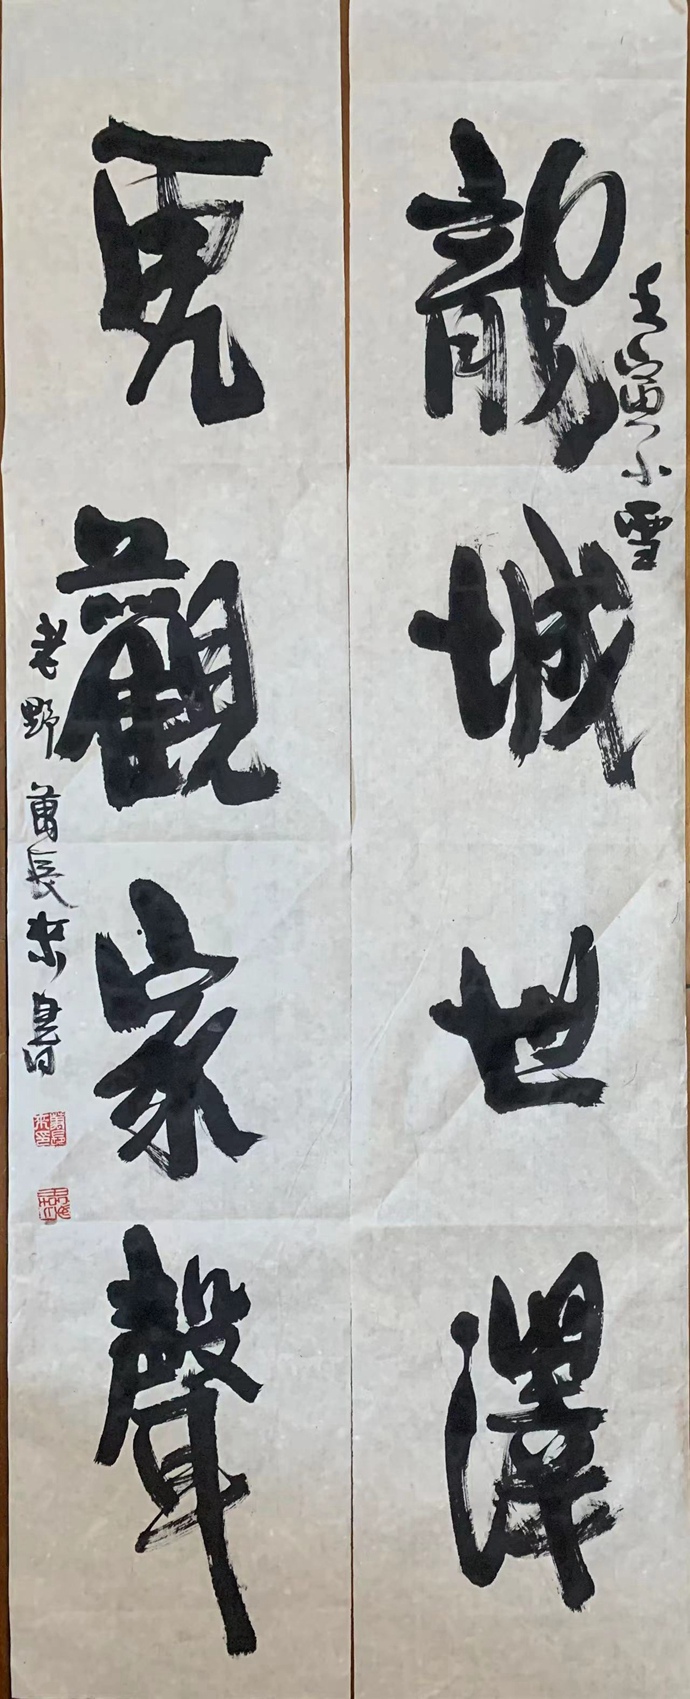 壬寅小雪
龍城世澤
虎觀家聲
老野萬長書